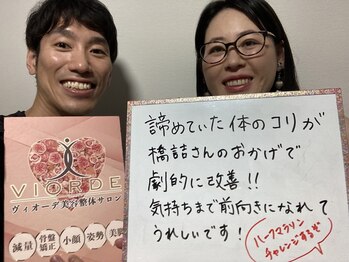 諦めていた体のコリが
橋詰さんのおかげで
劇的に改善!!
気持ちまで前向きになれて
うれしいです!
ハーフマラソン
チャレンジするぞ
VIORDE
ヴィオーデ美容整体サロン
減量
骨盤
矯正
小顔
姿勢
美肌